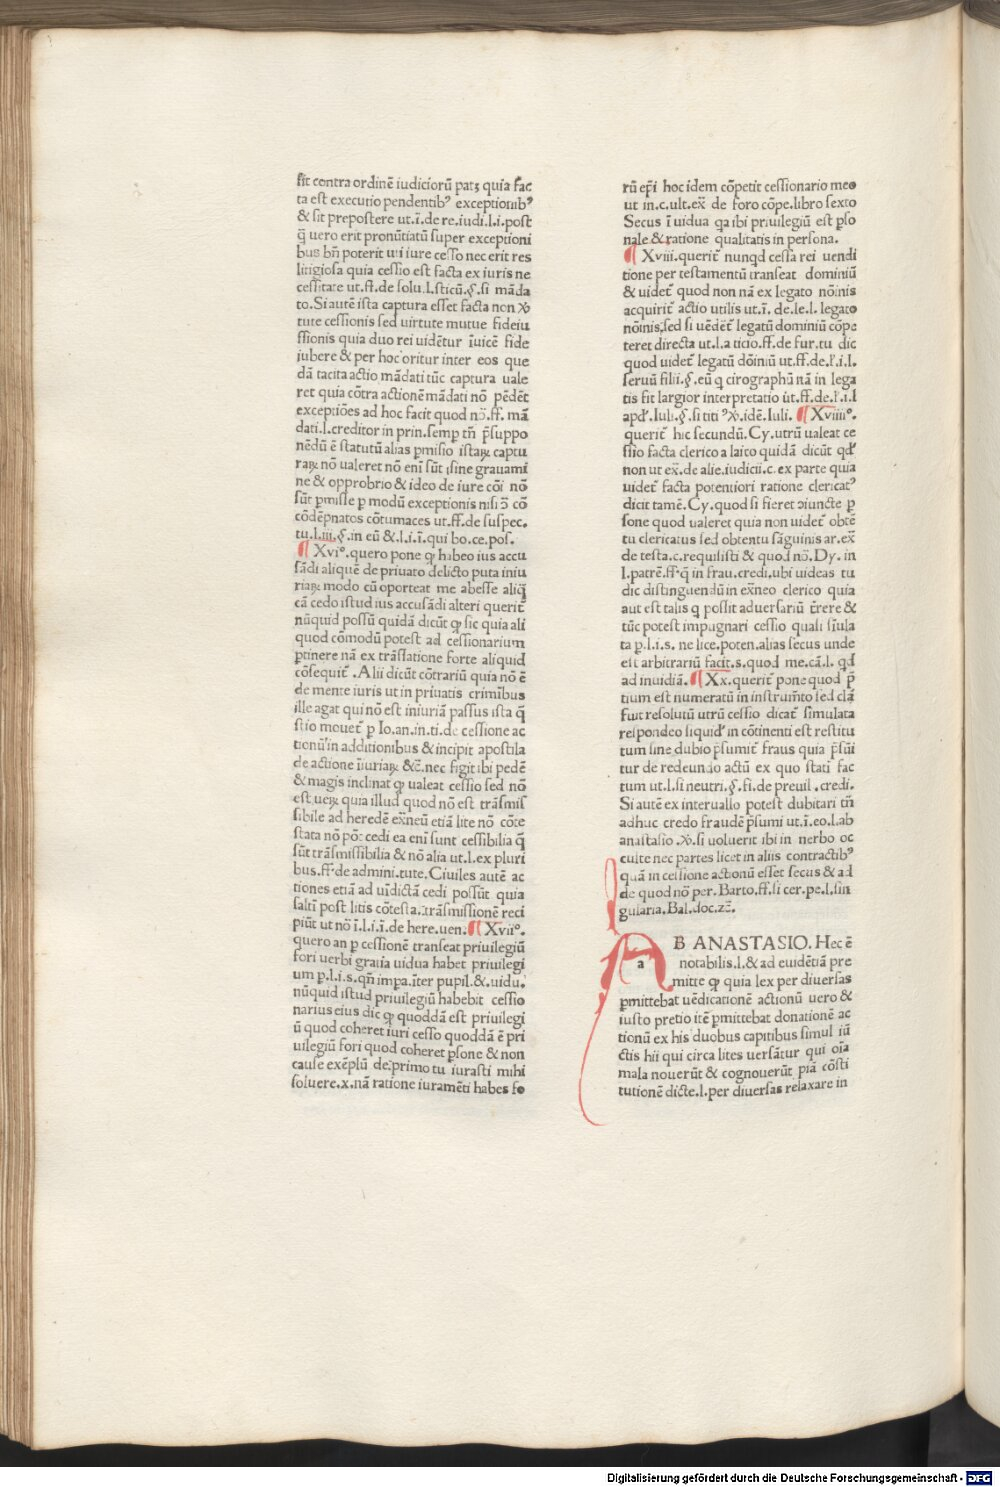 sit contra ordinē iudiciorū patꝫ quia fac
ta est executio pendentibꝰ exceptionibꝰ
& sit prepostere ut.ī.de re.iudi.l.i.post
q̄ uero erit pronūtiatū super exceptioni
bus bn̄ poterit uti iure cesso nec erit res
litigiosa quia cessio est facta ex iuris ne
cessitate ut.ff.de solu.l.sticū.§.si māda
to.Si autē ista captura esset facta non x̊
tute cessionis sed uirtute mutue fideiu
ssionis quia duo rei uidētur īuicē fide
iubere & per hoc oritur inter eos que
dā tacita actio mādati tūc captura uale
ret quia cōtra actionē mādati nō pēdēt
exceptiōes ad hoc facit quod no.ff. mā
dati.l.creditor in prin.semꝑ tn̄ p̄suppo
nēdū ē statutū alias ꝑmisio istaꝝ captu
raꝝ nō ualeret nō eni sūt sine grauami
ne & opprobrio & ideo de iure cōi nō
sūt ꝑmisse ꝑ modū exceptionis nisi ɔ̄ cō
cōdēpnatos cōtumaces ut.ff.de suspec.
tu.l.iii.§.in eū & l.i.ī.qui bo.ce.pos.
¶ Xviº.quero pone ꝙ habeo ius accu
sādi aliquē de priuato delicto puta iniu
riaꝝ modo cū oporteat me abesse aliq̄
cā cedo istud ius accusādi alteri querit̄
nūquid possū quidā dicūt ꝙ sic quia ali
quod cōmodū potest ad cessionarium
ꝑtinere nā ex trāslatione forte aliquid
cōsequit̄ .Alii dicūt cōtrariū quia nō ē
de mente iuris ut in priuatis criminbus
ille agat qui nō est iniuriā passus ista q̄
stio mouet̄ ꝑ Io.an.in.ti.de cessione ac
tionū in additionibus & incipit apostila
de actione īiuriaꝝ &c̄.nec figit ibi pedē
& magis inclinat ꝙ ualeat cessio sed nō
est ueꝝ quia illud quod nō est trāsmis
sibile ad heredē ex̄neū etiā lite nō cōte
stata nō pōt cedi ea eni sunt cessibilia q̄
sūt trāsmissibilia & nō alia ut.l.ex pluri
bus.ff.de admini.tute.Ciuiles autē ac
tiones etiā ad uīdictā cedi possūt quia
saltī post litis cōtesta.trāsmissionē reci
piūt ut no ī.l.i.ī.de here.uen.¶ Xviiº.
quero an ꝑ cessionē transeat priuilegiū
fori uerbi gratia uidua habet priuilegi
um ꝑ.l.i.s.qn̄ impa.īter pupil.&.uidu.
nūquid istud priuilegiū habebit cessio
narius eius dic ꝙ quoddā est priuilegi
ū quod coheret iuri cesso quoddā ē pri
uilegiū fori quod coheret ꝑsone & non
cause exēplū de primo tu iurasti mihi
soluere.x.nā ratione iuramēti habes fo
rū ep̄i hoc idem cōpetit cessionario meo
ut in.c.ult.ex̄ de foro cōpe.libro sexto
Secus ī uidua qa ibi priuilegiū est ꝑso
nale & ratione qualitatis in persona.
¶ Xviii.querit̄ nunqd cessa rei uendi
tione per testamentū transeat dominiū
& uidet̄ quod non nā ex legato nōinis
acquirit̄ actio utilis ut.ī. de.le.l. legato
nōinis,sed si uēdēt̄ legatū dominiū cōpe
teret directa ut.l.a ticio.ff.de fur.tu dic
quod uidet̄ legatū dōiniū ut.ff.de.l'.i.l.
seruū filii.§.eū q cirographū nā in lega
tis fit largior interpretatio ut.ff.de.l'.i.l
apd'.Iuli.§.si titi ꝰx̊.idē.Iuli. ¶ Xviiiiº.
querit̄ hic secundū.Cy.utrū ualeat ce
ssio facta clerico a laico quidā dicūt qd'
non ut ex̄.de alie.iudicii.c.ex parte quia
uidet̄ facta potentiori ratione clericatꝰ
dicit tamē.Cy.quod si fieret ɔiuncte ꝑ
sone quod ualeret quia non uidet̄ obtē
tu clericatus sed obtentu sāguinis ar.ex̄
de testa.c.requisisti & quod no.Dy. in
l.patrē.ff.q̄ in frau.credi.ubi uideas tu
dic distinguendū in ex̄neo clerico quia
aut est talis q possit aduersariū t̄rere &
tūc potest impugnari cessio quasi sīula
ta ꝑ.l.i.s. ne lice.poten.alias secus unde
est arbitrariū facit.s.quod me.cā.l. qd
ad inuidiā.¶ Xx.querit̄ pone quod p̄
tium est numeratū in instrum̄to sed clā
fuit resolutū utrū cessio dicat̄ simulata
respondeo si quid' in cōtinenti est restitu
tum sine dubio p̄sumit̄ fraus quia p̄sūi
tur de redeundo actū ex quo stati fac
tum ut.l.si neutri.§.fi.de preuil.credi.
Si autē ex interuallo potest dubitari tn̄
adhuc credo fraudē p̄sumi ut.ī.eo.l.ab
anastasio.x̊.si uoluerit ibi in nerbo oc
culte nec partes licet in aliis contractibꝰ
quā in cessione actionū esset secus & ad
de quod nō per. Barto.ff.si cer.pe.l.sin
gularia.Bal.doc.zc̄.
AB ANASTASIO. Hec ē
a notabilis.l.& ad euidētiā pre
mitte ꝙ quia lex per diuersas
ꝑmittebat uēdicationē actionū uero &
iusto pretio itē ꝑmittebat donationē ac
tionū ex his duobus capitibus simul iū
ctis hii qui circa lites uersātur qui oīa
mala nouerūt & cognouerūt piā cōsti
tutionē dicte.l.per diuersas relaxare in
Digitalisierung gefördert durch die Deutsche Forschungsgemeinschaft - DFG